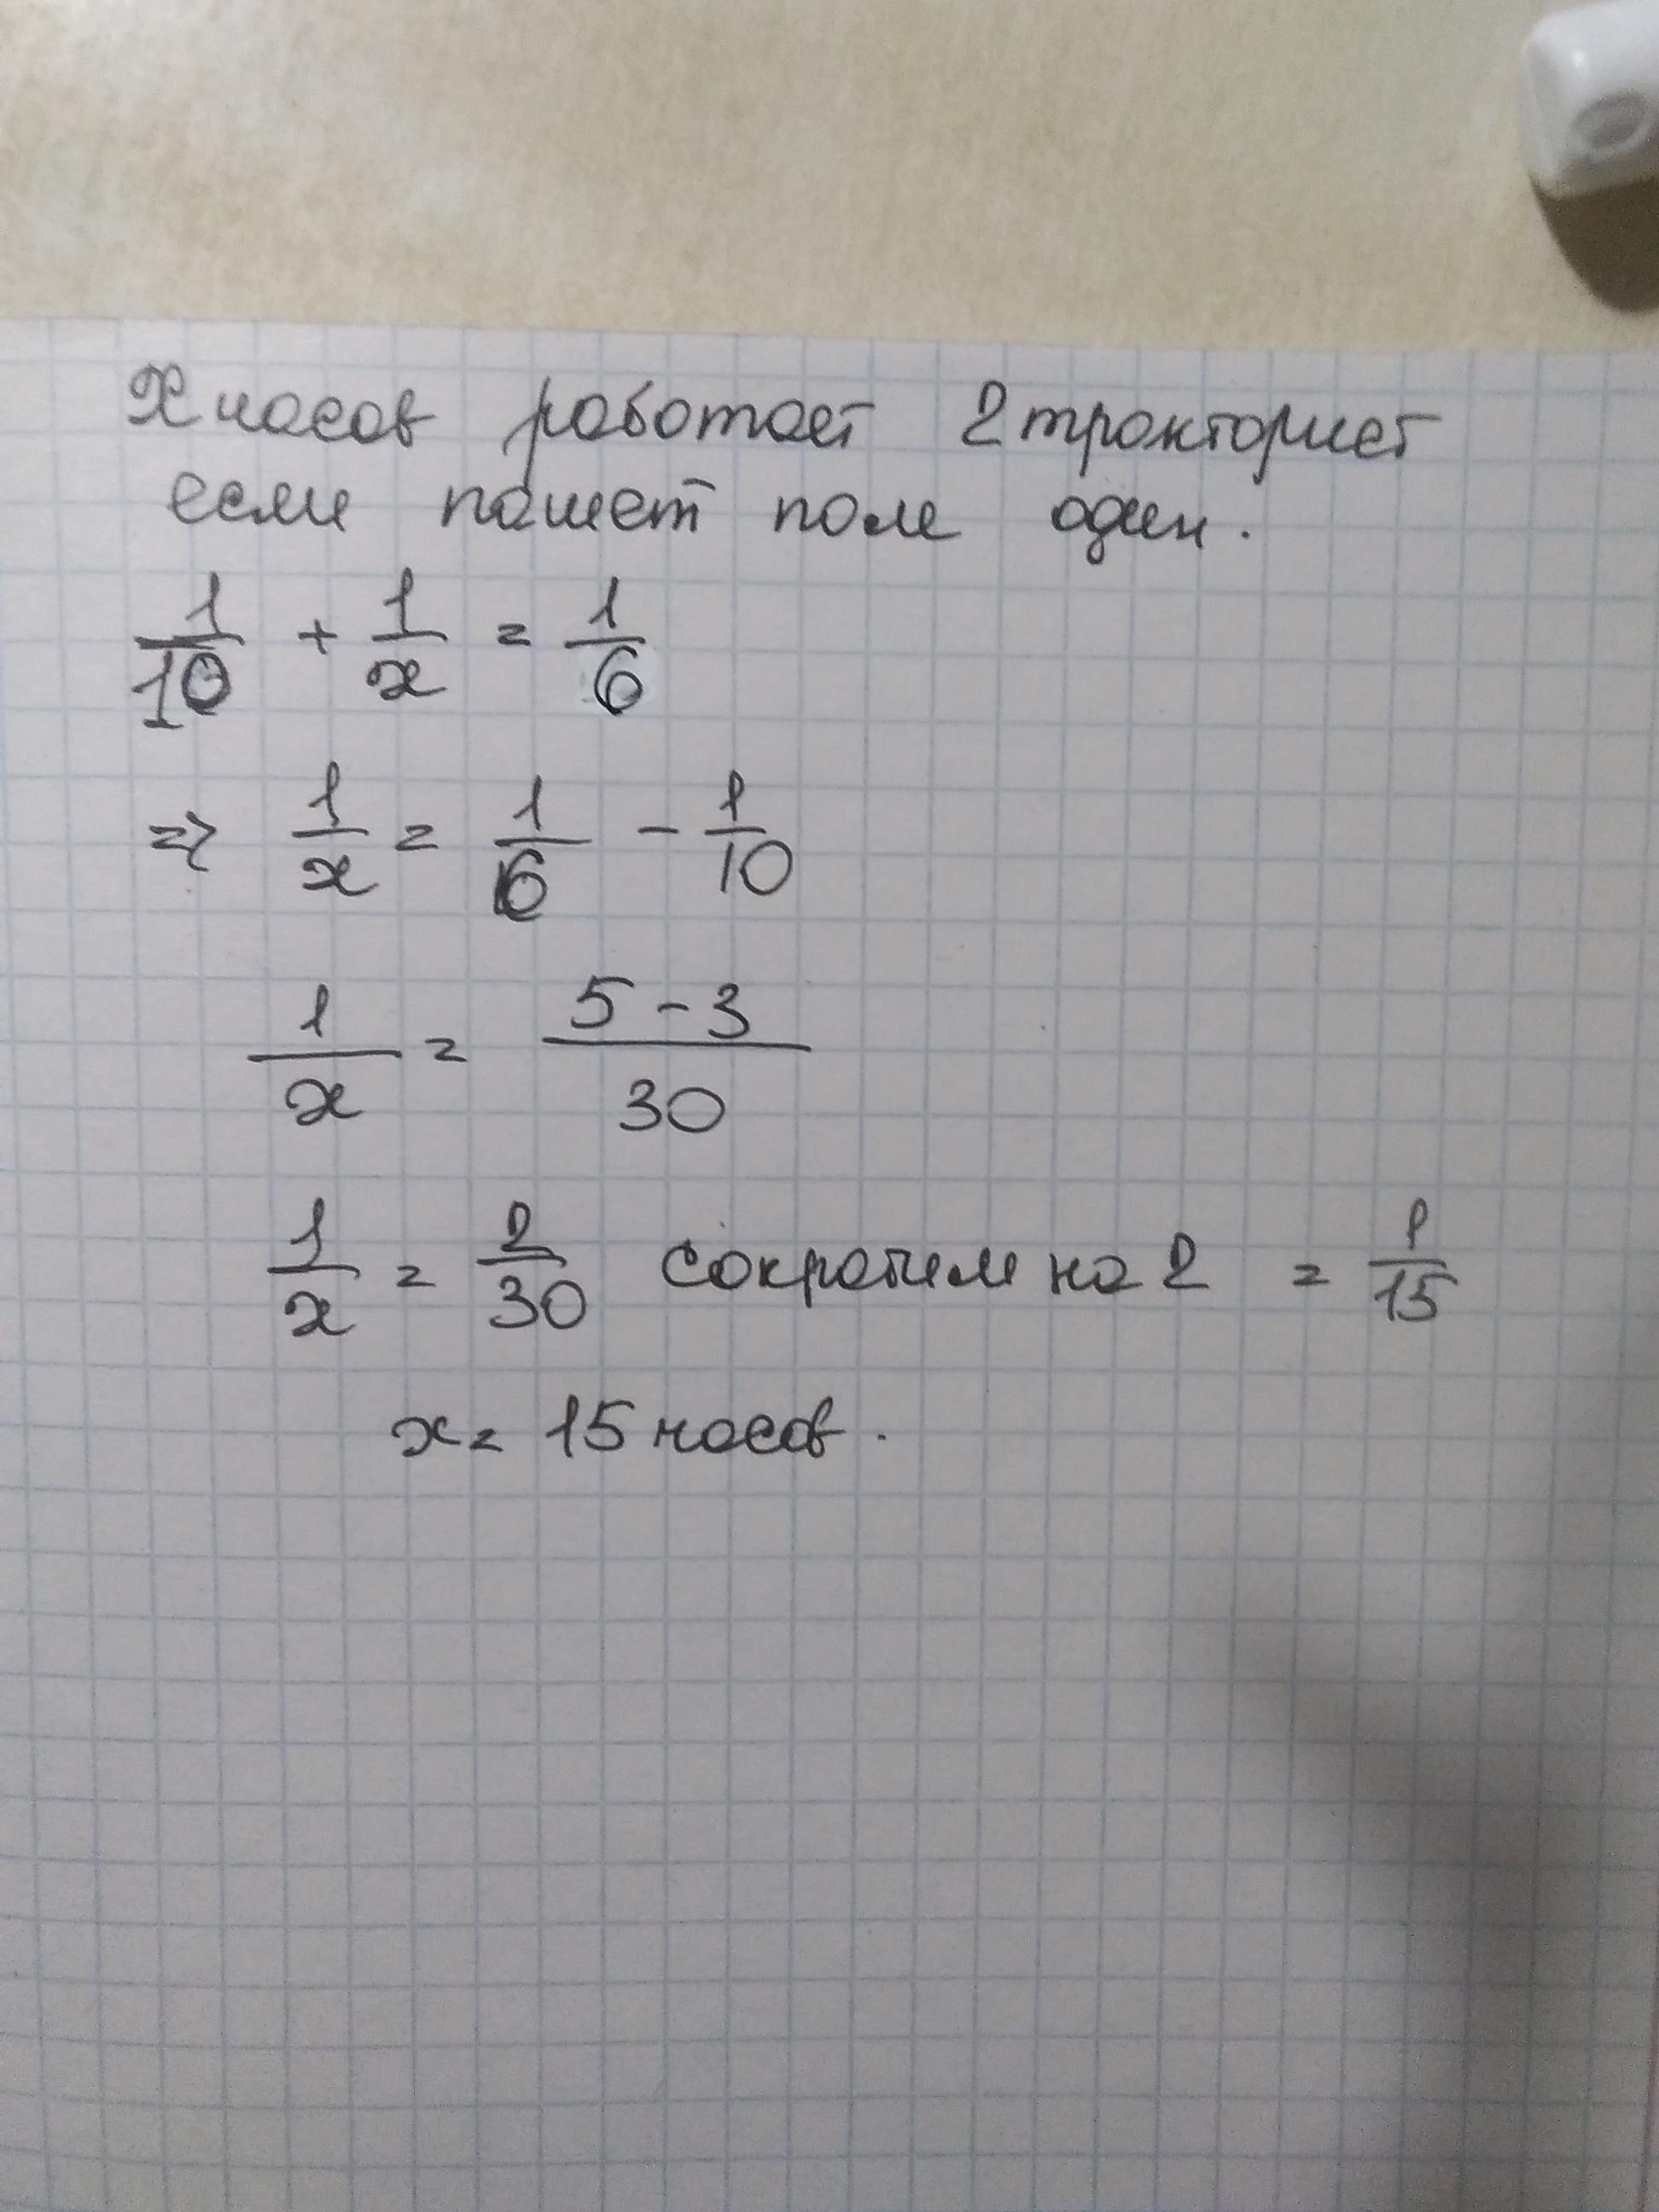 X часов работает 2 тракторист
если пашет поле один.
1/10 + 1/x = 1/6
=> 1/x = 1/6 - 1/10
1/x = (5 - 3)/30
1/x = 2/30 сократим на 2 = 1/15
x = 15 часов.